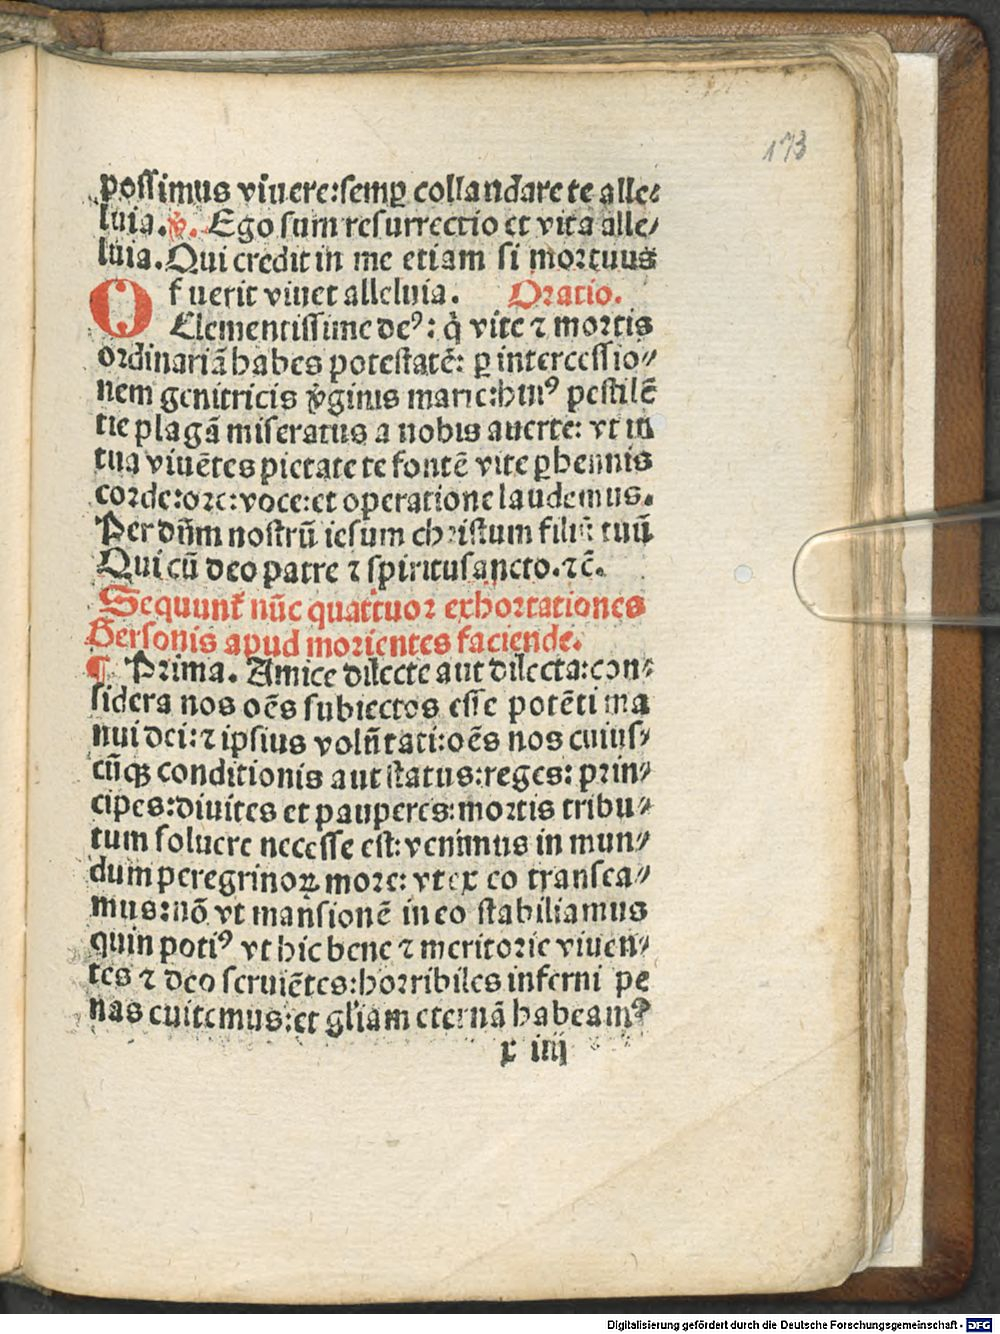 173
possimus viuere:semꝑ collaudare te alle⸗
luia. ℣. Ego sum resurrectio et vita alle⸗
luia. Qui credit in me etiam si mortuus
fuerit viuet alleluia. Oratio.
O Clementissime deꝰ: q̇ vite ⁊ mortis
ordinariā habes potestatē: ꝑ intercessio⸗
nem genitricis v̓ginis marie:huiꝰ pestilē
tie plagā miseratus a nobis auerte: vt in
tua viuētes pietate te fontē vite ꝑhennis
corde:ore:voce:et operatione laudemus.
Per dn̄m nostrū iesum christum filiū tuū
Qui cū deo patre ⁊ spiritusancto.⁊c̄.
Sequunt̄ nūc quattuor exhortationes
Gersonis apud morientes faciende.
¶ Prima. Amice dilecte aut dilecta:con⸗
sidera nos oēs subiectos esse potēti ma
nui dei:⁊ ipsius volūtati:oēs nos cuius⸗
cūqꝫ conditionis aut status:reges: prin⸗
cipes:diuites et pauperes:mortis tribu⸗
tum soluere necesse est:venimus in mun⸗
dum peregrinoꝝ more: vt ex eo transea⸗
mus:nō vt mansionē in eo stabiliamus
quin potiꝰ vt hic bene ⁊ meritorie viuen⸗
tes ⁊ deo seruiētes:horribiles inferni pe
nas euitemus:et gl̓iam eternā habeamꝰ
x iiij
Digitalisierung gefördert durch die Deutsche Forschungsgemeinschaft - DFG